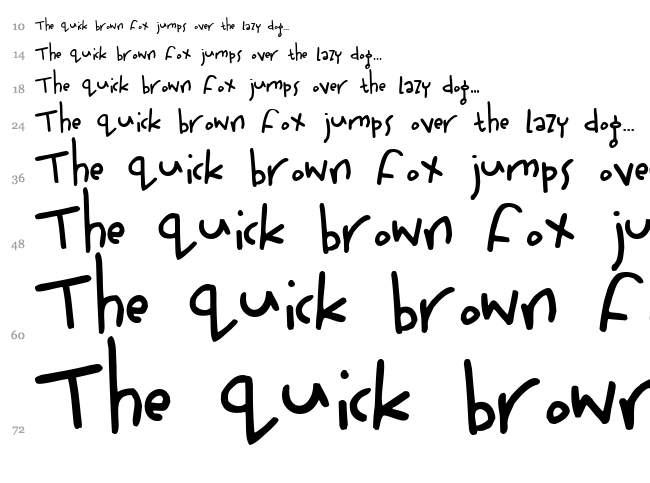 10 The quick brown fox jumps over the lazy dog...
14 The quick brown fox jumps over the lazy dog...
18 The quick brown fox jumps over the lazy dog...
24 The quick brown fox jumps over the lazy dog...
36 The quick brown fox jumps ove
48 The quick brown fox ju
60 The quick brown f
72 The quick brown